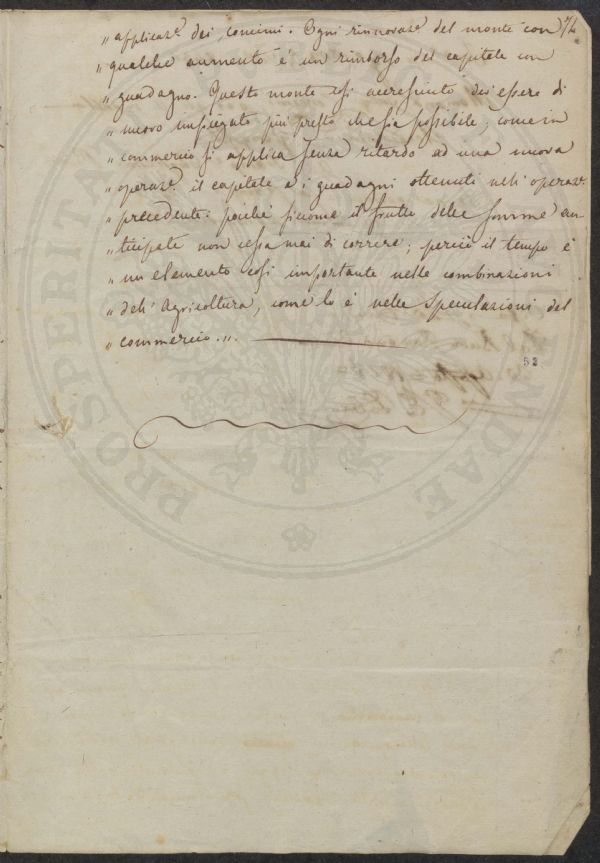 „ applicaz.e dei concimi. Ogni rinnovaz.e del monte con 74
„ qualche aumento è un rimborso del capitale con
„ guadagno. Questo monte così accresciuto dev'essere di
„ nuovo impiegato più presto che sia possibile; come in
„ commercio si applica senza ritardo ad una nuova
„ operaz.e il capitale e i guadagni ottenuti nell'operaz.e
„ precedente: poichè siccome il frutto delle somme an
„ ticipate non cessa mai di correre; perciò il tempo è
„ un elemento così importante nelle combinazioni
„ dell'Agricoltura, come lo è nelle speculazioni del
„ commercio.„.
52
PROSPERITATI